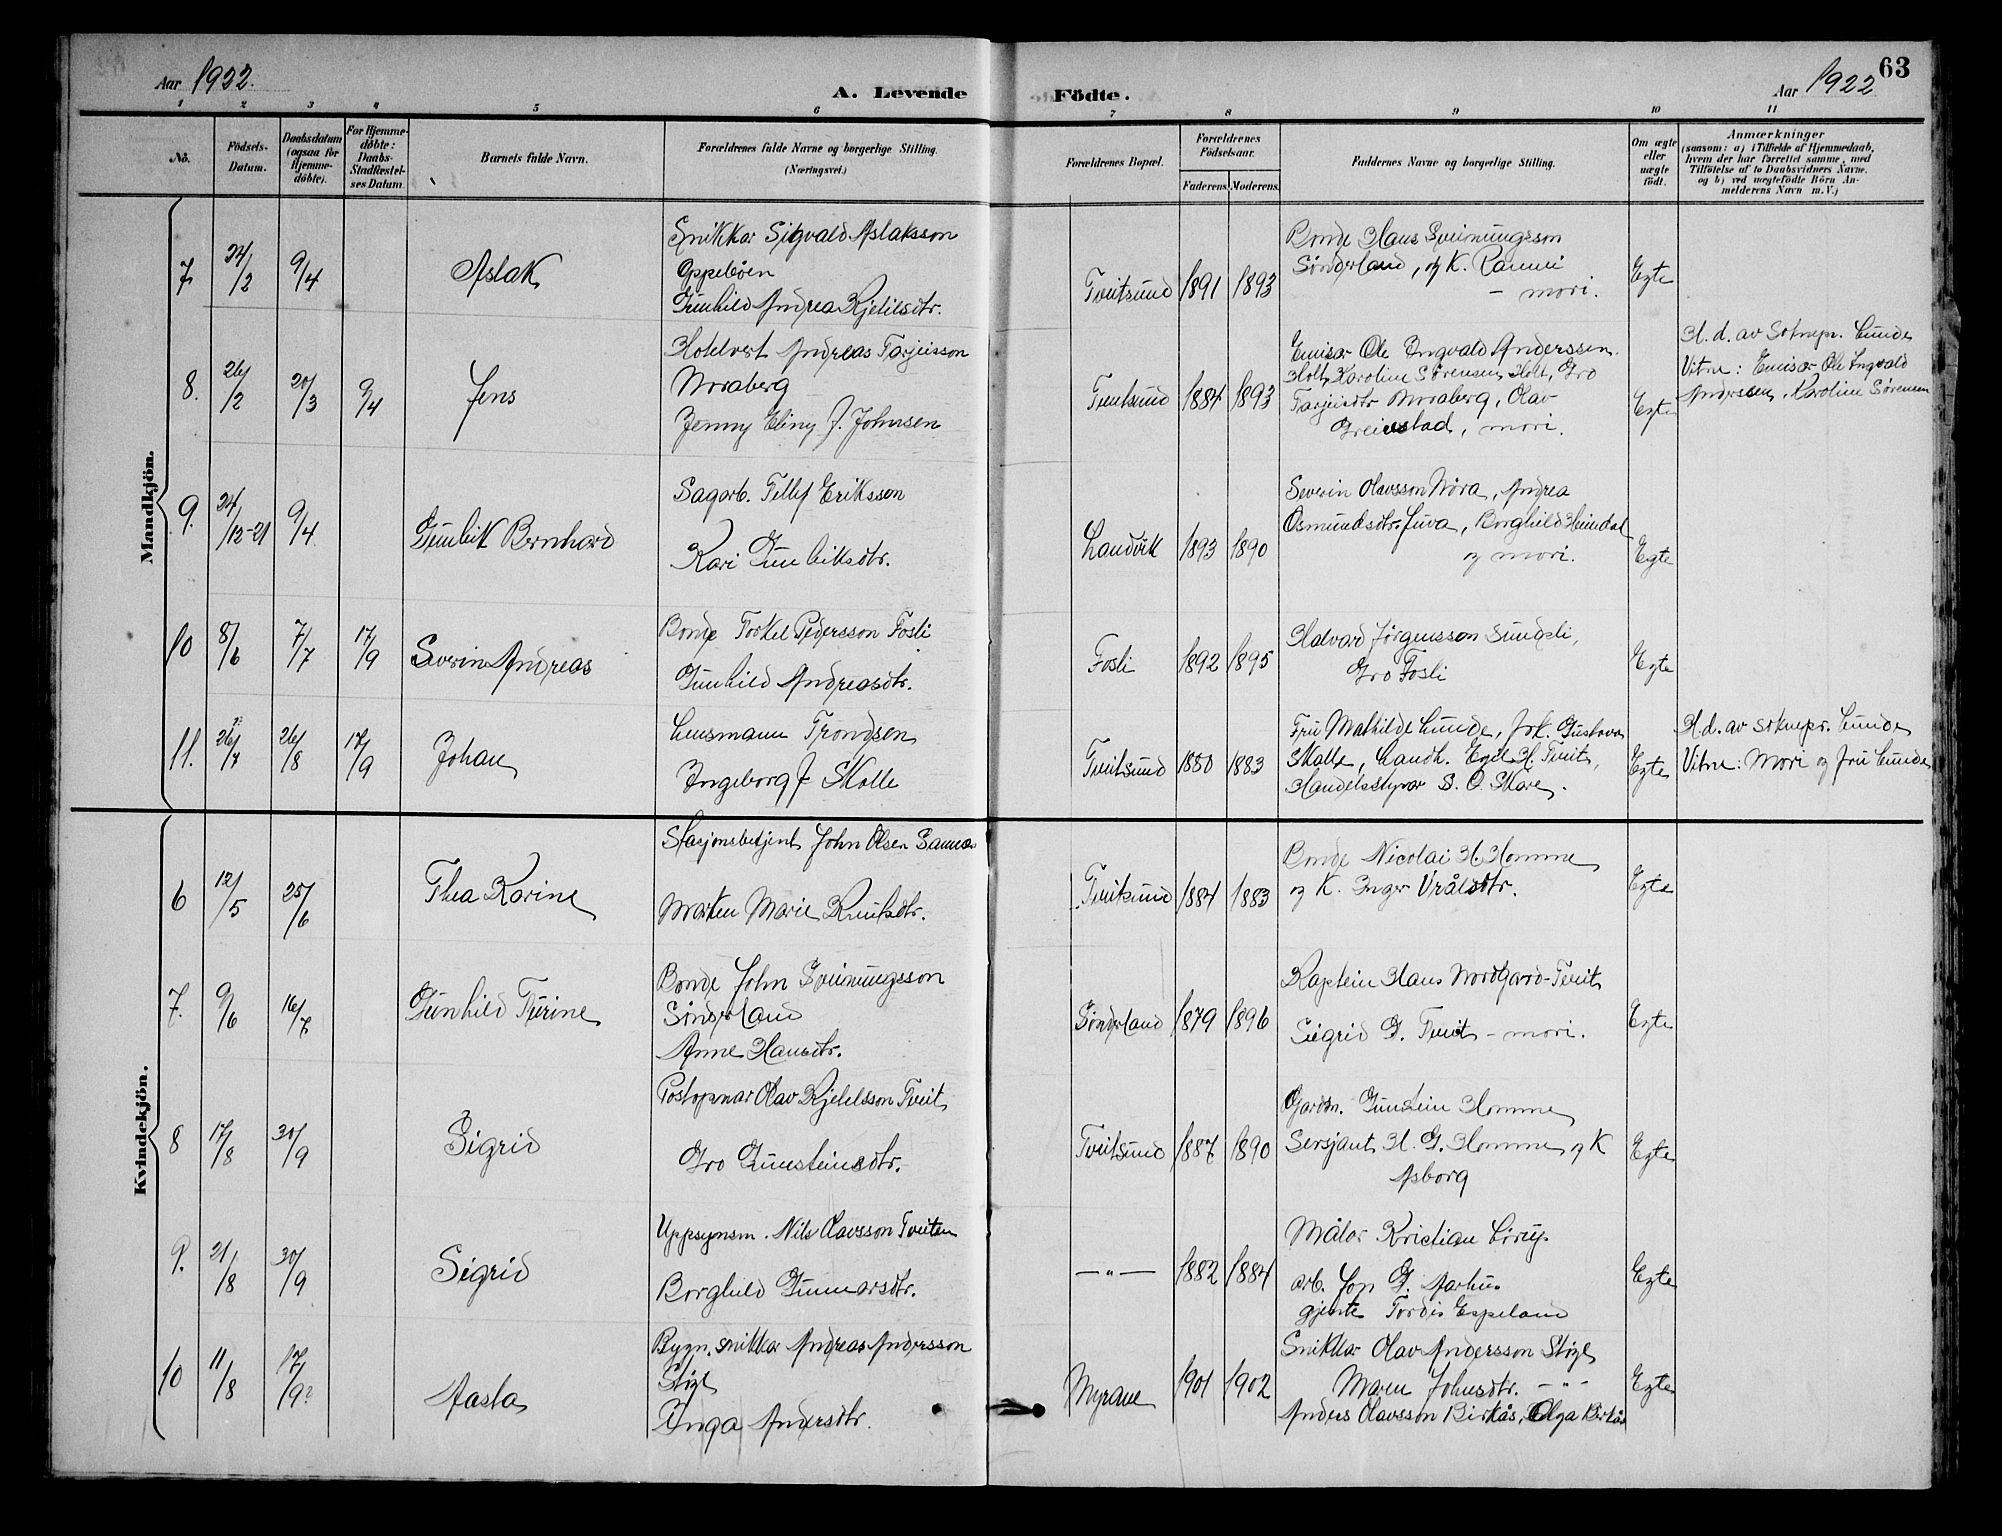 Aar 1922.
A. Levende Födte.
Aar 1922
63
1 2 3 4 5 6 7 8 9 10 11
No.
Födsels-Datum.
Daabsdatum (ogsaa for Hjemme-döbte).
For Hjemme-döbte: Daabs-Stadfæstel-ses Datum.
Barnets fulde Navn.
Forældrenes fulde Navne og borgerlige Stilling. (Næringsvei.)
Forældrenes Bopæl.
Forældrenes Födselsaar.
Faderens. Moderens.
Faddernes Navne og borgerlige Stilling.
Om ægte eller uægte födt.
Anmærkninger
(saasom: a) i Tilfælde af Hjemmedaab, hvem der har forrettet samme, med Tilföielse af to Daabsvidners Navne. og b) ved uægtefödte Börn An-melderens Navn m. V.)
Mandkjön.
7. 24/2 9/4 Aslak
Snikkar Sigvald Aslaksson
Oppebøen
Gunhild Andrea Kjetilsdtr.
Tveitsund 1891 1893
Bonde Hans Sveinungsson
Sønderland, og K. Ranni
- mori.
Egte
8. 26/2 20/3 9/4 Jens
Hotelvert Andreas Tarjeisson
Noraberg
Jenny Eliny J. Johnsen
Tveitsund 1884 1893
Emisær Ole Ingvald Anderssen
Holt, Karoline Sørensen Holt, Gro
Tarjeisdtr Noraberg, Olav
Greivstad, mori.
Egte
H. d. av Soknepr. Lunde
Vitne: Emisær Ole Ingvald
Anderssen, Karoline Sørensen
9. 24/12-21 9/4 Gunleik Bernhard
Sagarb. Tellef Eriksson
Kari Gunleiksdtr.
Landvik 1893 1890
Severin Olavsson Nøra, Andrea
Osmundsdtr. Juva, Borghild Heimdal
og mori.
Egte
10 8/6 7/7 17/9 Severin Andreas
Bonde Torkel Pedersson Fosli
Gunhild Andreasdtr.
Fosli 1892 1895
Halvard Jørgensson Sundsli,
Gro Fosli
Egte
11. 26/7 26/8 17/9 Johan
Lensmann Trondsen
Ingeborg J Skolle
Tveitsund 1880 1883
Fru Mathilde Lunde, frk. Gustava
Skolle, Landh. Egil H. Tveit,
Handelsstyrar S. O. Skare.
Egte
H. d. av soknepr. Lunde
Vitne: Mori og fru Lunde
Kvindekjön.
6 12/5 25/6 Thea Karine
Stasjonsbetjent John Olsen
Marten Marie Knutsdtr.
Tveitsund 1884 1883
Bonde Nicolai H. Homme
og K. Inger Vråldstr.
Egte
7. 9/6 16/7 Gunhild Turine
Bonde John Sveinungsson
Sønderland
Anne Hansdtr.
Sønderland 1879 1896
Kaptein Hans Nordgard-Tveit
Sigrid G. Tveit - mori.
Egte
8 17/8 30/9 Sigrid
Postopnar Olav Kjetelsson Tveit
Gro Gunsteinsdtr.
Tveitsund 1887 1890
Gardbr. Gunstein Homme
Sersjant H. G. Homme og K
Asborg
Egte
9. 21/8 30/9 Sigrid
Uppsynsm. Nils Olavsson Tveiten
Borghild Gunnarsdtr.
—"— 1882 1884
Målar Kristian
arb. Jon G. Aarhus
gjente Tordis Espeland
Egte
10 11/8 17/9? Aasta
Bygn. snikkar Andreas Andersson
Støyl
Inga Andersdtr.
Myrane 1901 1902
Snikkar Olav Andersson Støyl
Maren Johnsdtr. —"—
Anders Olavsson Birkås, Olga Birkås
Egte